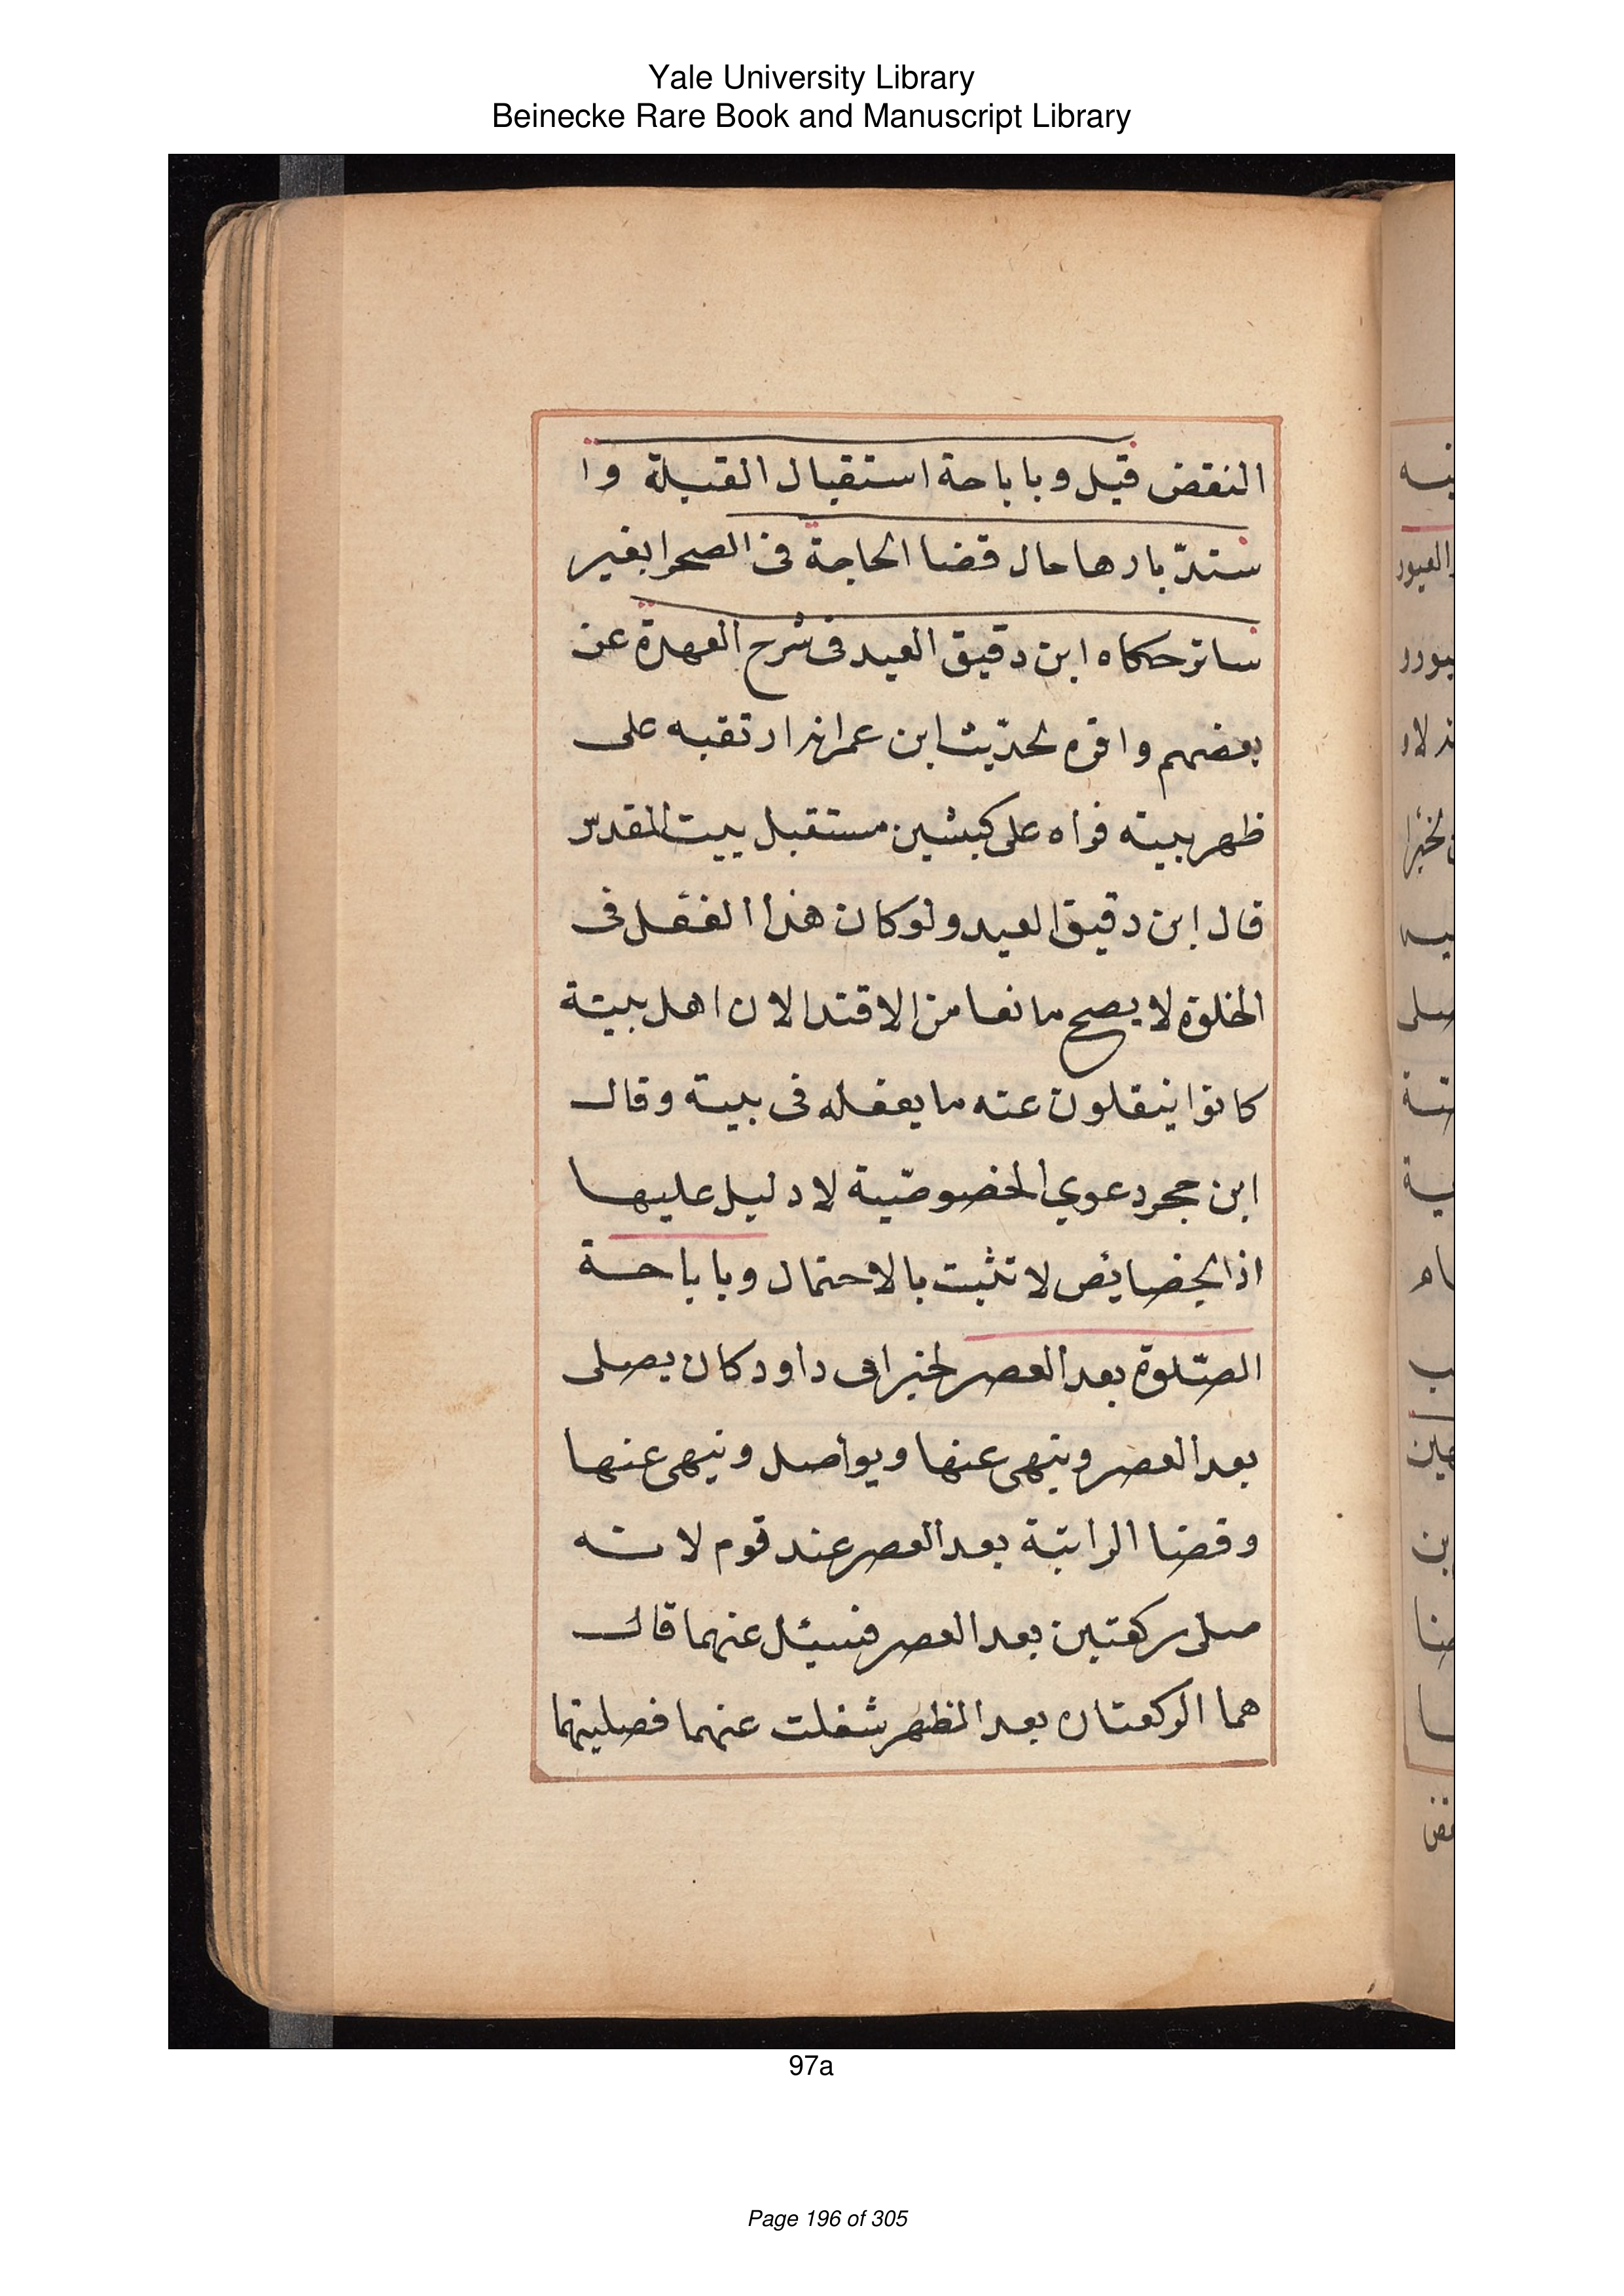 Yale University Library
Beinecke Rare Book and Manuscript Library
النقض قيل وباباحة استقبال القبلة وا
ستدبارها حال قضا الحاجة فى الصحرا بغير
ساتر حكاه ابن دقيق العيد فى شرح العهدة عن
بعضهم واقره لحديث ابن عمر انه ارتقبه على
ظهر بيته فراه على كبشين مستقبل بيت المقدس
قال ابن دقيق العيد ولو كان هذا الفعل فى
الخلوة لا يصح مانعا من الاقتدا لان اهل بيتة
كانوا ينقلون عنه ما يفعله فى بيتة وقال
ابن حجر دعوي الخصوصية لا دليل عليها
اذ الخصايص لا تثبت بالاحتمال وباباحة
الصلوة بعد العصر لخبر ابى داود كان يصلى
بعد العصر وينهى عنها ويواصل وينهى عنها
وقضا الراتبة بعد العصر عند قوم لانه
صلى ركعتين بعد العصر فسيئل عنهما قال
هما الركعتان بعد الظهر شغلت عنهما فصليتهما
97a
Page 196 of 305